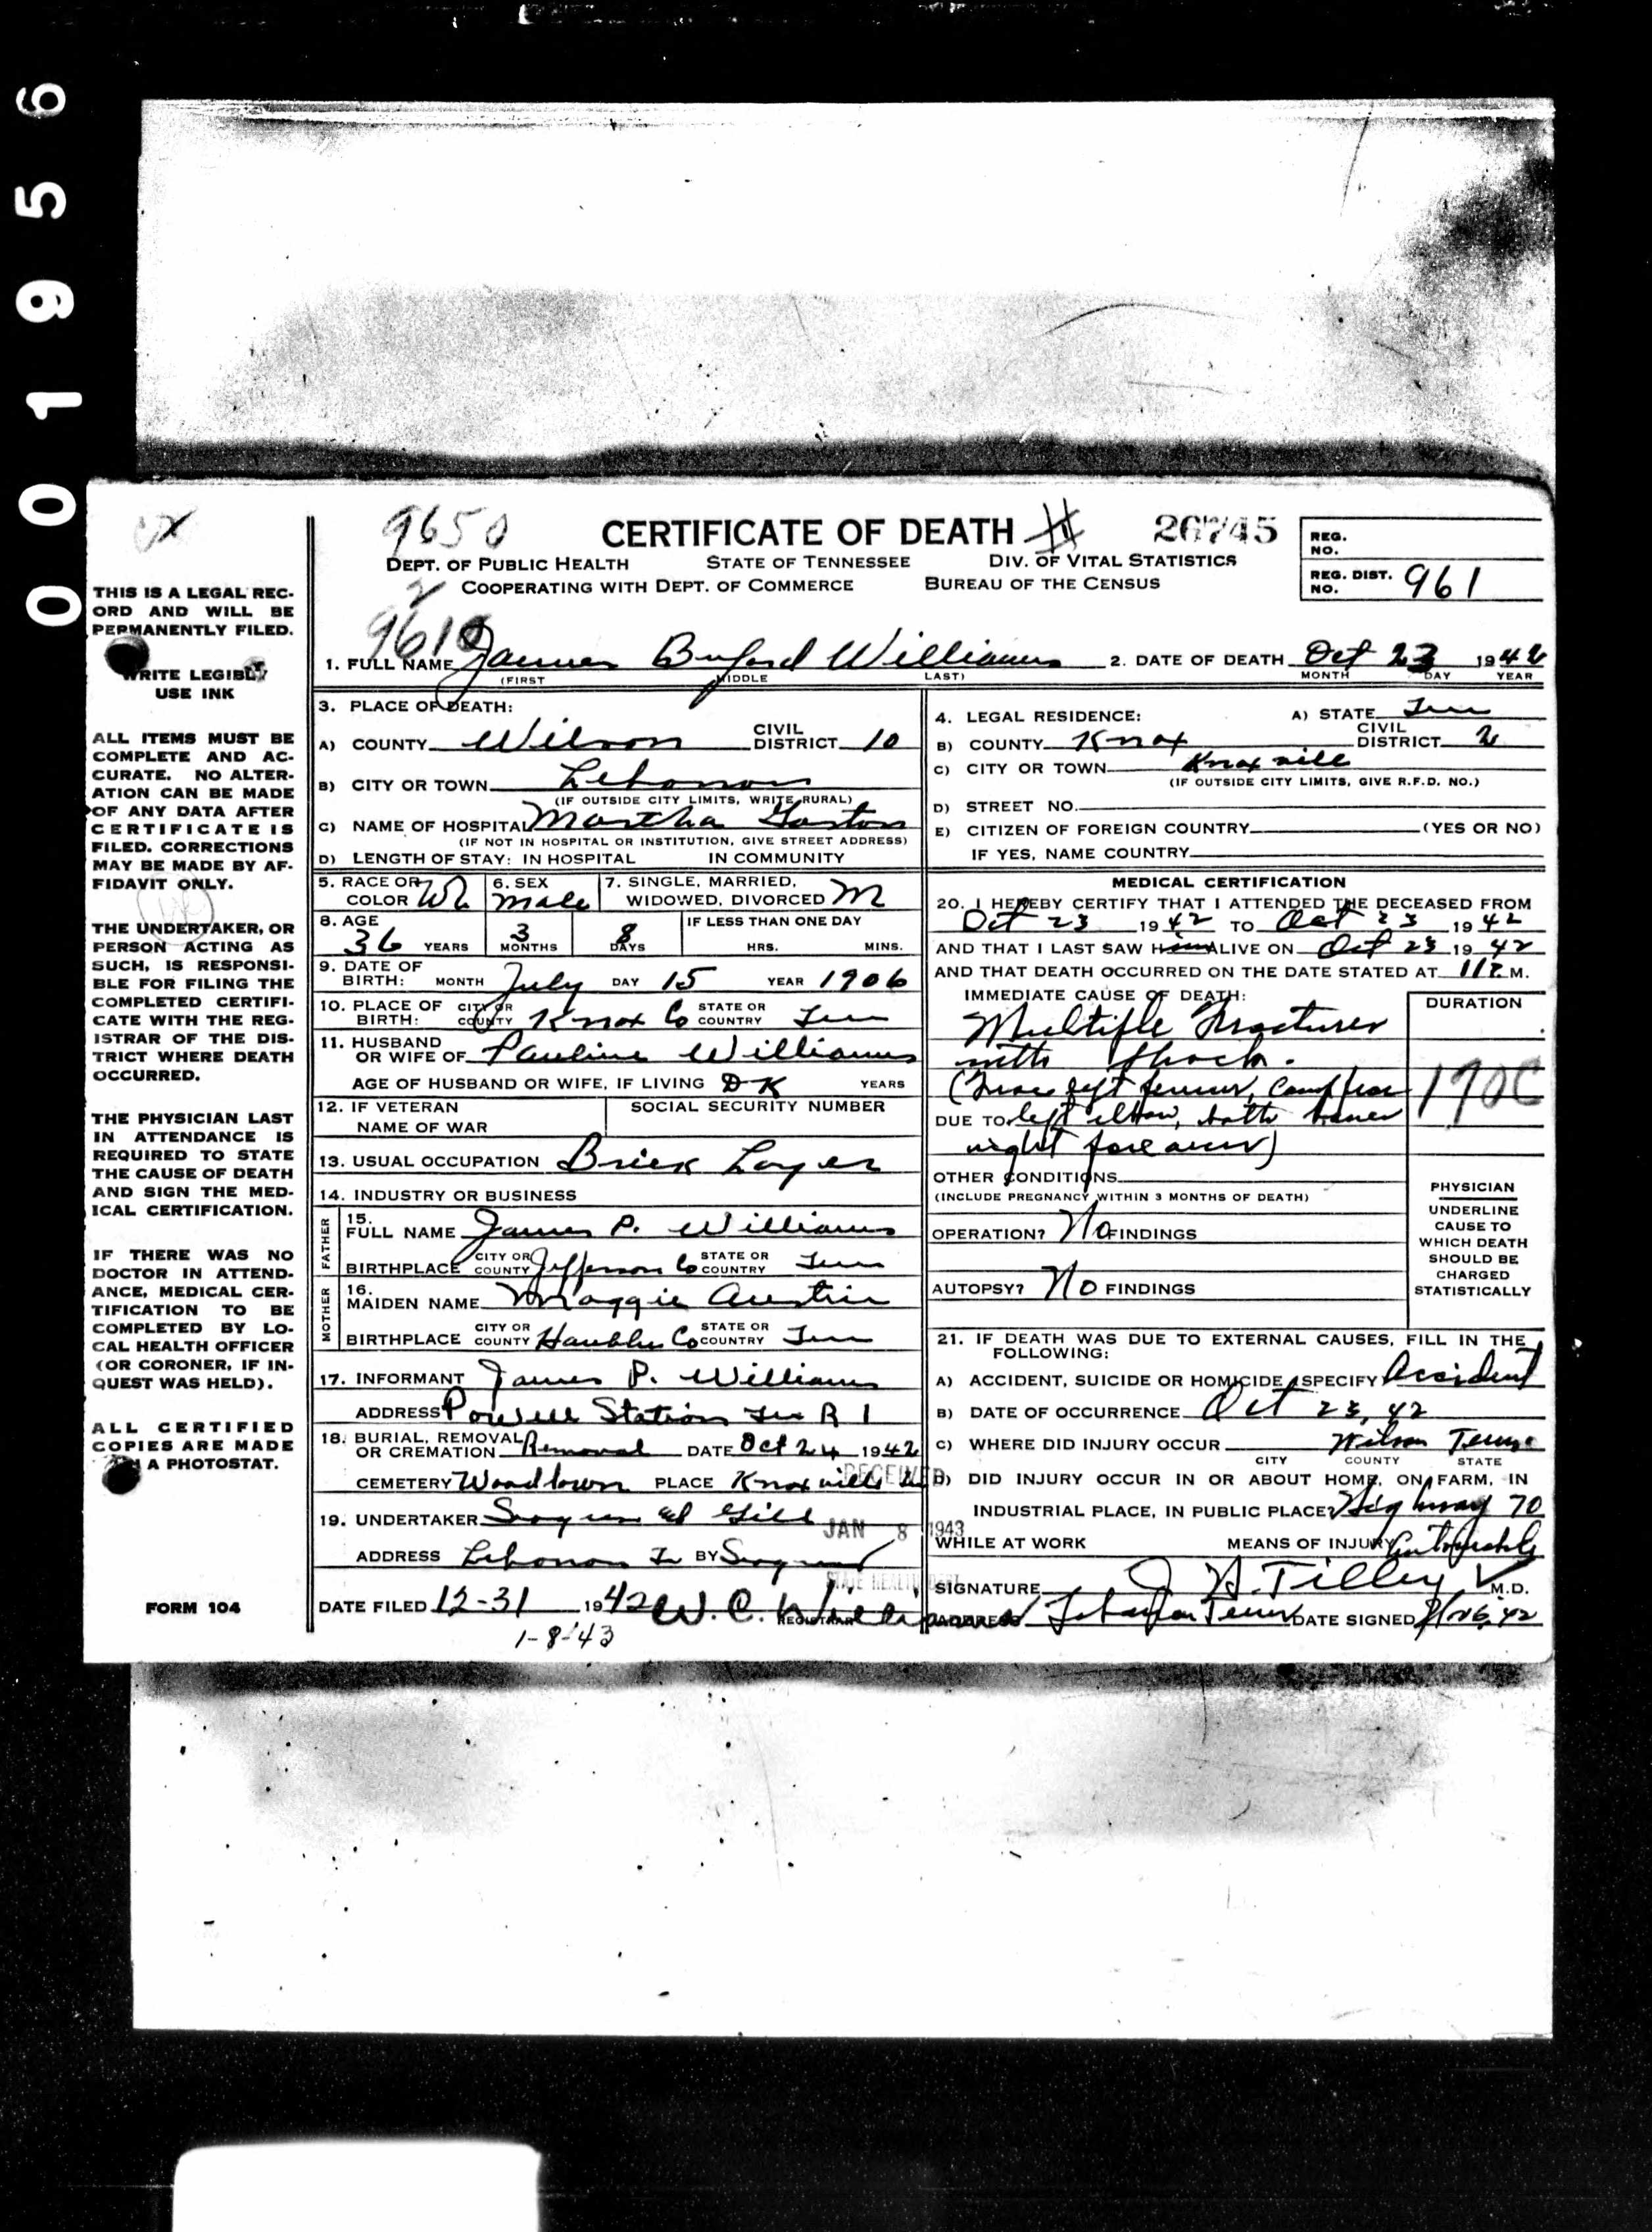 0001956
9650
CERTIFICATE OF DEATH
26745
REG. NO.
DEPT. OF PUBLIC HEALTH STATE OF TENNESSEE DIV. OF VITAL STATISTICS
COOPERATING WITH DEPT. OF COMMERCE BUREAU OF THE CENSUS
REG. DIST. NO. 961
THIS IS A LEGAL REC-
ORD AND WILL BE
PERMANENTLY FILED.
WRITE LEGIBLY
USE INK
ALL ITEMS MUST BE
COMPLETE AND AC-
CURATE. NO ALTER-
ATION CAN BE MADE
OF ANY DATA AFTER
CERTIFICATE IS
FILED. CORRECTIONS
MAY BE MADE BY AF-
FIDAVIT ONLY.
THE UNDERTAKER, OR
PERSON ACTING AS
SUCH, IS RESPONSI-
BLE FOR FILING THE
COMPLETED CERTIFI-
CATE WITH THE REG-
ISTRAR OF THE DIS-
TRICT WHERE DEATH
OCCURRED.
THE PHYSICIAN LAST
IN ATTENDANCE IS
REQUIRED TO STATE
THE CAUSE OF DEATH
AND SIGN THE MED-
ICAL CERTIFICATION.
IF THERE WAS NO
DOCTOR IN ATTEND-
ANCE, MEDICAL CER-
TIFICATION TO BE
COMPLETED BY LO-
CAL HEALTH OFFICER
(OR CORONER, IF IN-
QUEST WAS HELD).
ALL CERTIFIED
COPIES ARE MADE
A PHOTOSTAT.
FORM 104
1. FULL NAME James Buford Williams 2. DATE OF DEATH Oct 23 1942
(FIRST MIDDLE LAST) MONTH DAY YEAR
3. PLACE OF DEATH:
A) COUNTY Wilson CIVIL DISTRICT 10
B) CITY OR TOWN Lebanon
(IF OUTSIDE CITY LIMITS, WRITE RURAL)
C) NAME OF HOSPITAL Martha Gaston
(IF NOT IN HOSPITAL OR INSTITUTION, GIVE STREET ADDRESS)
D) LENGTH OF STAY: IN HOSPITAL IN COMMUNITY
5. RACE OR COLOR Wh 6. SEX male 7. SINGLE, MARRIED, WIDOWED, DIVORCED M
8. AGE 36 YEARS 3 MONTHS 8 DAYS IF LESS THAN ONE DAY HRS. MINS.
9. DATE OF BIRTH: MONTH July DAY 15 YEAR 1906
10. PLACE OF BIRTH: CITY OR COUNTY Knox Co STATE OR COUNTRY Tenn
11. HUSBAND OR WIFE OF Pauline Williams
AGE OF HUSBAND OR WIFE, IF LIVING DK YEARS
12. IF VETERAN NAME OF WAR SOCIAL SECURITY NUMBER
13. USUAL OCCUPATION Brick Layer
14. INDUSTRY OR BUSINESS
FATHER
15. FULL NAME James P. Williams
BIRTHPLACE CITY OR COUNTY Jefferson Co STATE OR COUNTRY Tenn
MOTHER
16. MAIDEN NAME Maggie Austin
BIRTHPLACE CITY OR COUNTY Hamblen Co STATE OR COUNTRY Tenn
17. INFORMANT James P. Williams
ADDRESS Powell Station Tenn R 1
18. BURIAL, REMOVAL OR CREMATION Removal DATE Oct 24 1942
CEMETERY Woodlawn PLACE Knoxville
RECEIVED
19. UNDERTAKER Gill
JAN 8 1943
ADDRESS Lebanon Tn BY
STATE HEALTH DEPT.
DATE FILED 12-31 1942 W. C. REGISTRAR
1-8-43
4. LEGAL RESIDENCE: A) STATE Tenn
B) COUNTY Knox CIVIL DISTRICT 2
C) CITY OR TOWN Knoxville
(IF OUTSIDE CITY LIMITS, GIVE R.F.D. NO.)
D) STREET NO.
E) CITIZEN OF FOREIGN COUNTRY (YES OR NO)
IF YES, NAME COUNTRY
MEDICAL CERTIFICATION
20. I HEREBY CERTIFY THAT I ATTENDED THE DECEASED FROM
Oct 23 1942 TO Oct 23 1942
AND THAT I LAST SAW HIM ALIVE ON Oct 23 1942
AND THAT DEATH OCCURRED ON THE DATE STATED AT 11 P M.
IMMEDIATE CAUSE OF DEATH: DURATION
Multiple Fractures
with Shock.
(Frac left femur, Comp frac
DUE TO left elbow, both bones
right forearm)
170C
OTHER CONDITIONS
(INCLUDE PREGNANCY WITHIN 3 MONTHS OF DEATH)
OPERATION? No FINDINGS
AUTOPSY? No FINDINGS
PHYSICIAN
UNDERLINE
CAUSE TO
WHICH DEATH
SHOULD BE
CHARGED
STATISTICALLY
21. IF DEATH WAS DUE TO EXTERNAL CAUSES, FILL IN THE
FOLLOWING:
A) ACCIDENT, SUICIDE OR HOMICIDE, SPECIFY Accident
B) DATE OF OCCURRENCE Oct 23, 42
C) WHERE DID INJURY OCCUR Wilson Tenn
CITY COUNTY STATE
D) DID INJURY OCCUR IN OR ABOUT HOME, ON FARM, IN
INDUSTRIAL PLACE, IN PUBLIC PLACE Highway 70
WHILE AT WORK MEANS OF INJURY Automobile
SIGNATURE J. H. Tilley M.D.
ADDRESS Lebanon Tenn DATE SIGNED